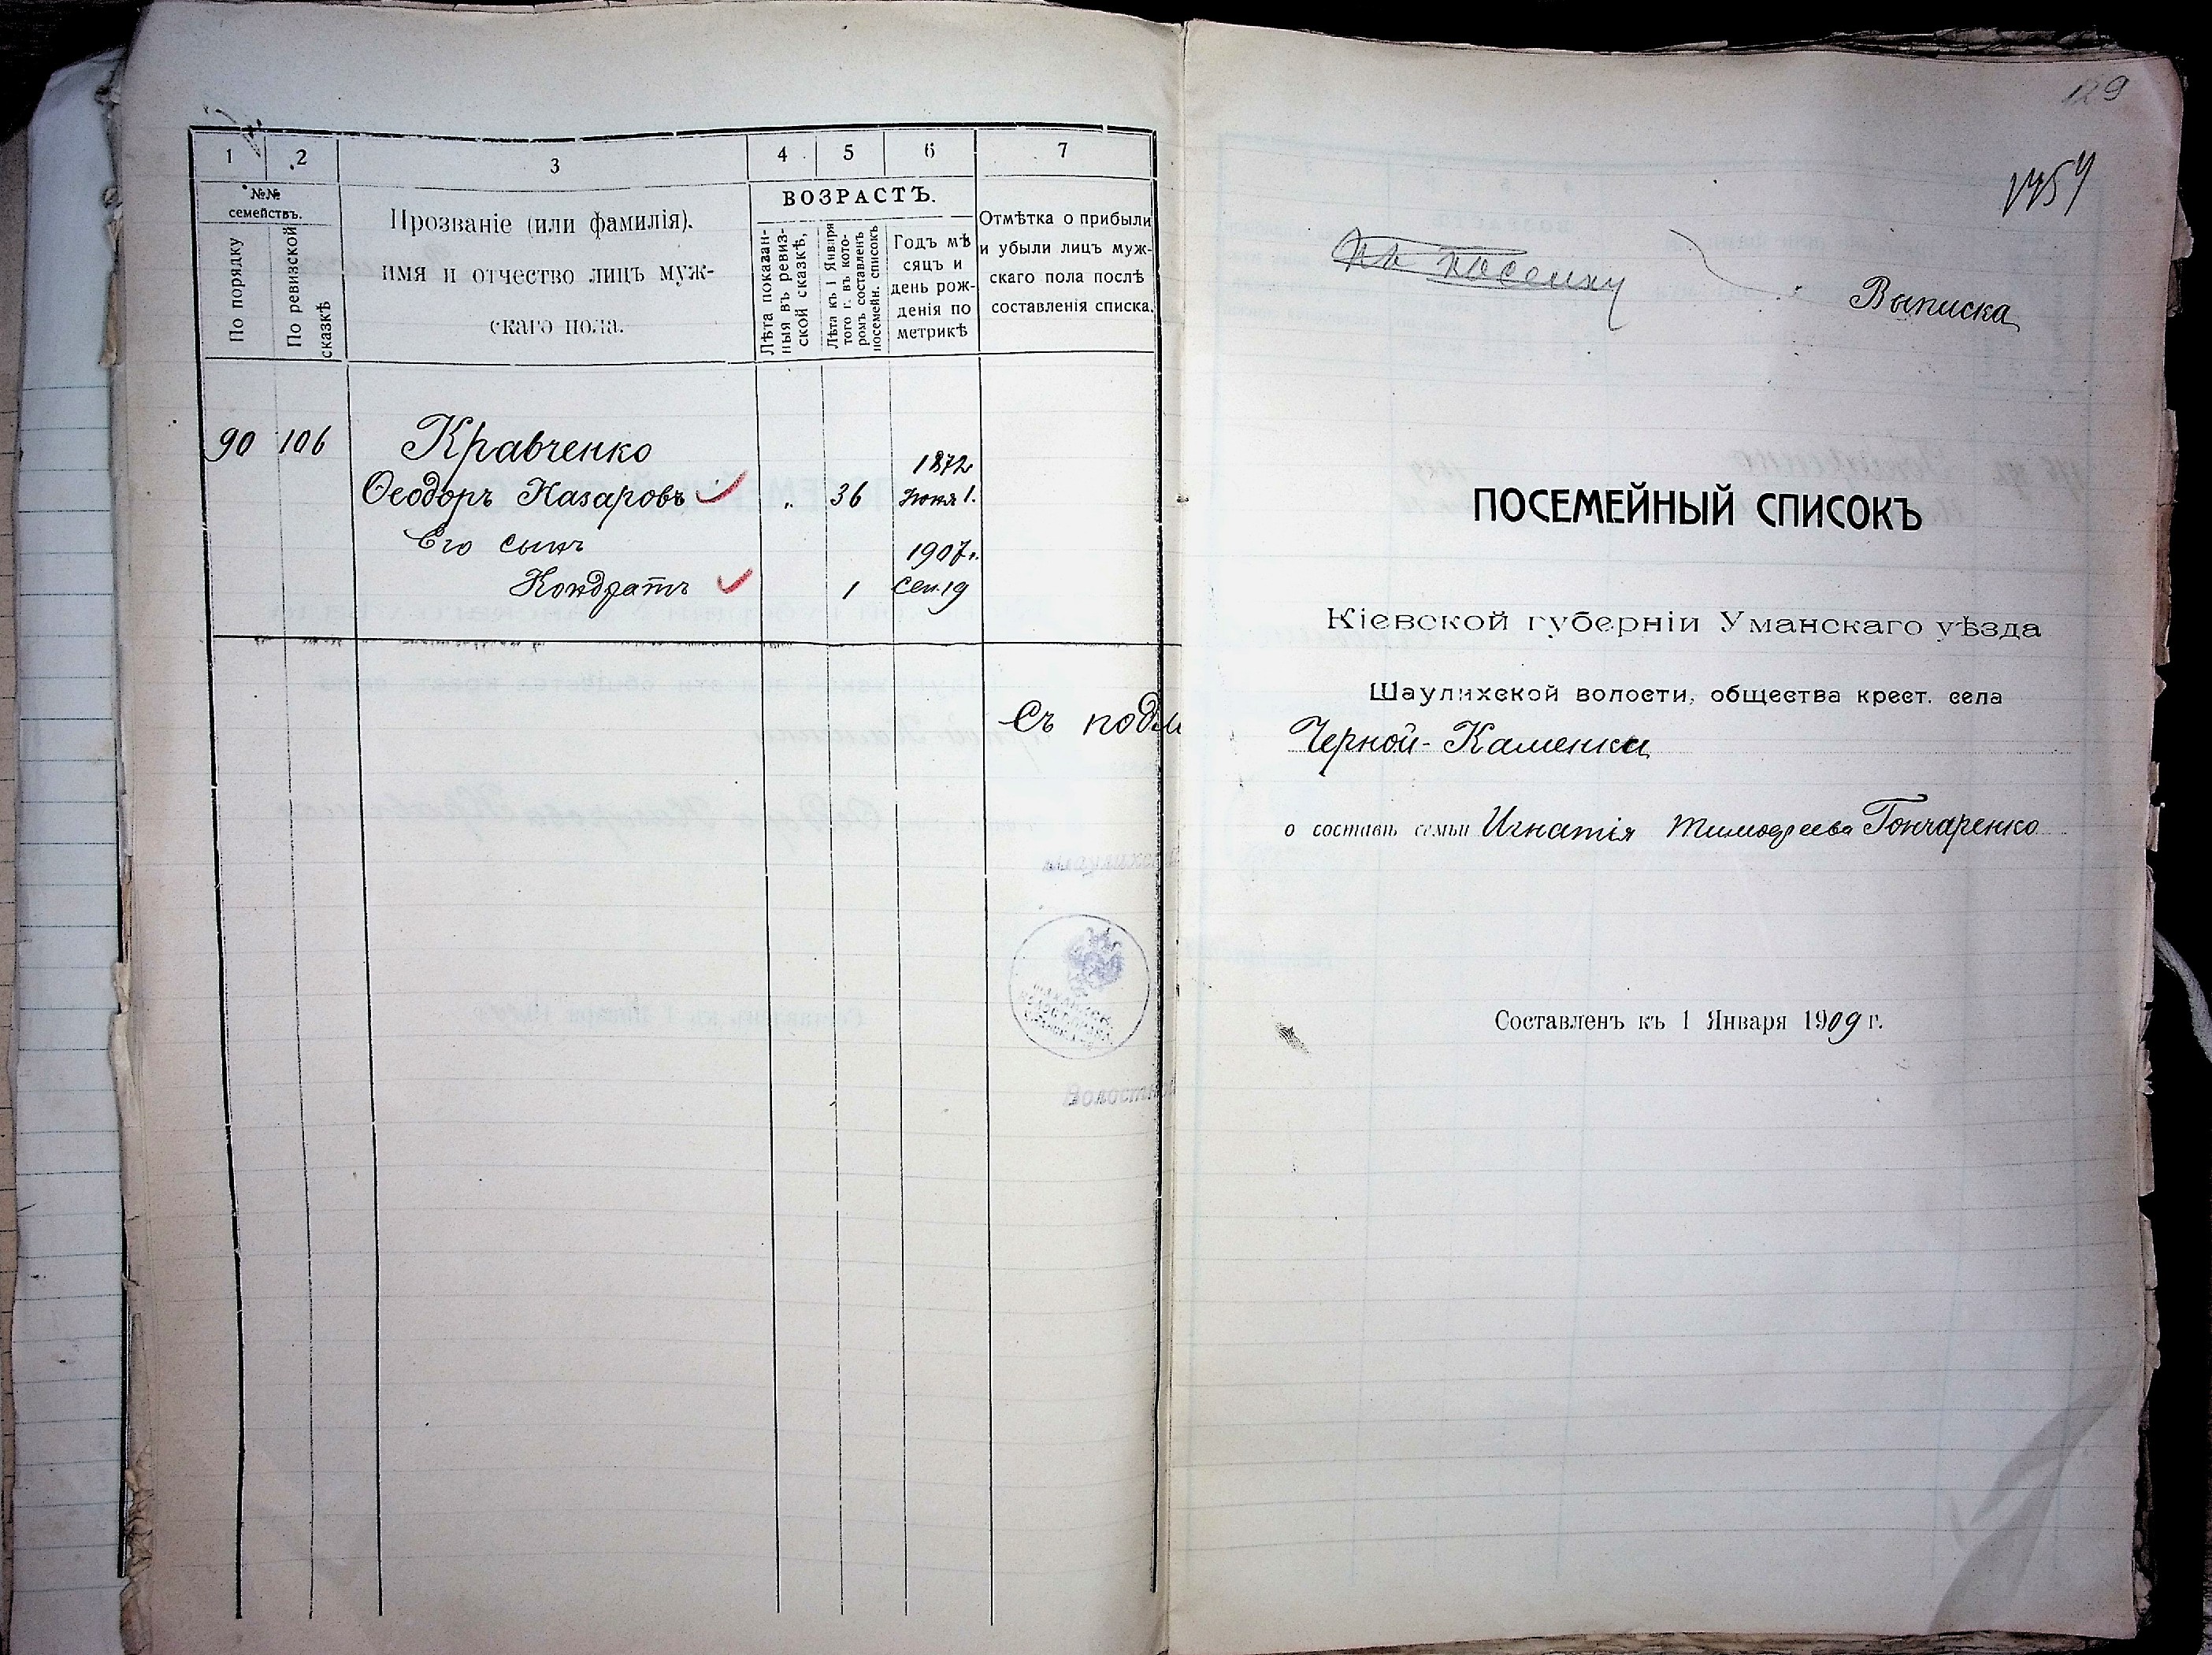 1 2 3 4 5 6 7
№№ семействъ.
По порядку
По ревизской сказкѣ
Прозваніе (или фамилія).
имя и отчество лицъ муж-
скаго пола.
ВОЗРАСТЪ.
Лѣта показан-
ныя въ ревиз-
ской сказкѣ,
Лѣта къ 1 Января
того г. въ кото-
ромъ составленъ
посемейн. списокъ
Годъ мѣ
сяцъ и
день рож-
денія по
метрикѣ
Отмѣтка о прибыли
и убыли лицъ муж-
скаго пола послѣ
составленія списка.
90 106 Кравченко
1872
Ѳеодоръ Назаровъ „ 36 Іюня 1.
Его сынъ
1907г.
Кондратъ 1 Сен. 19
Съ подли
Волостной
129
1754
Выписка
ПОСЕМЕЙНЫЙ СПИСОКЪ
Кіевской губерніи Уманскаго уѣзда
Шаулихской волости, общества крест. села
Черной-Каменки
о составѣ семьи Игнатія Тимоѳеева Гончаренко
Составленъ къ 1 Января 1909 г.